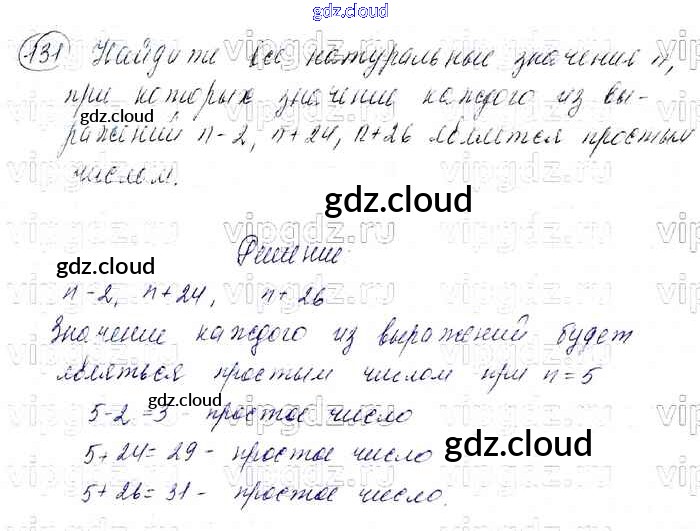 gdz.cloud
131 Найдите все натуральные значения n,
при которых значение каждого из вы-
gdz.cloud
ражений n-2, n+24, n+26 является простым
числом.
gdz.cloud
Решение:
gdz.cloud
n-2, n+24, n+26
Значение каждого из выражений будет
являться простым числом при n=5
gdz.cloud
5-2=3 - простое число
5+24=29 - простое число
gdz.cloud
5+26=31 - простое число.